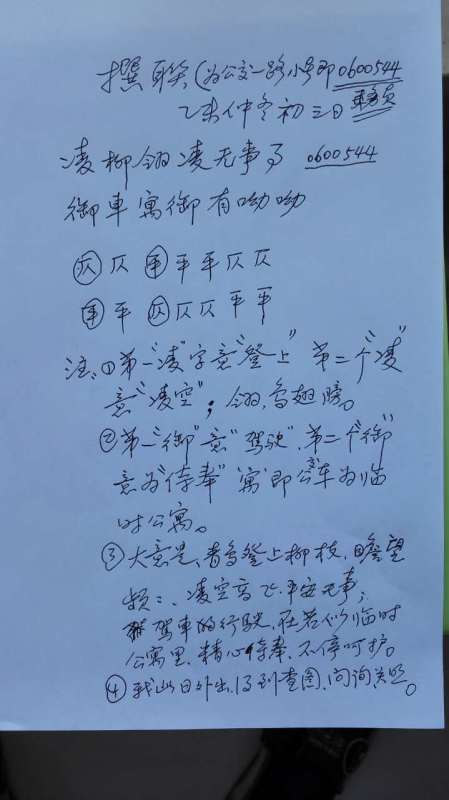 撰联(为公交一路小号即0600544
乙未仲冬初三日 乘务员
凌柳翎凌无事了 0600544
御車寓御有呦呦
仄仄平平平仄仄
平平仄仄仄平平
注、①第一"凌"字意"登上"第二个"凌"
意"凌空"；翎、鸟翅膀。
②第一"御"意"驾驶"、第二个"御"
意为"侍奉""寓"即公车为临
时公寓。
③大意是、青鸟登上柳枝、瞻望
凌空高飞、平安无事；
驾車的行驶、在若似临时
公寓里、精心侍奉、不停呵护。
④我此日外出、得到查图、问询关照。